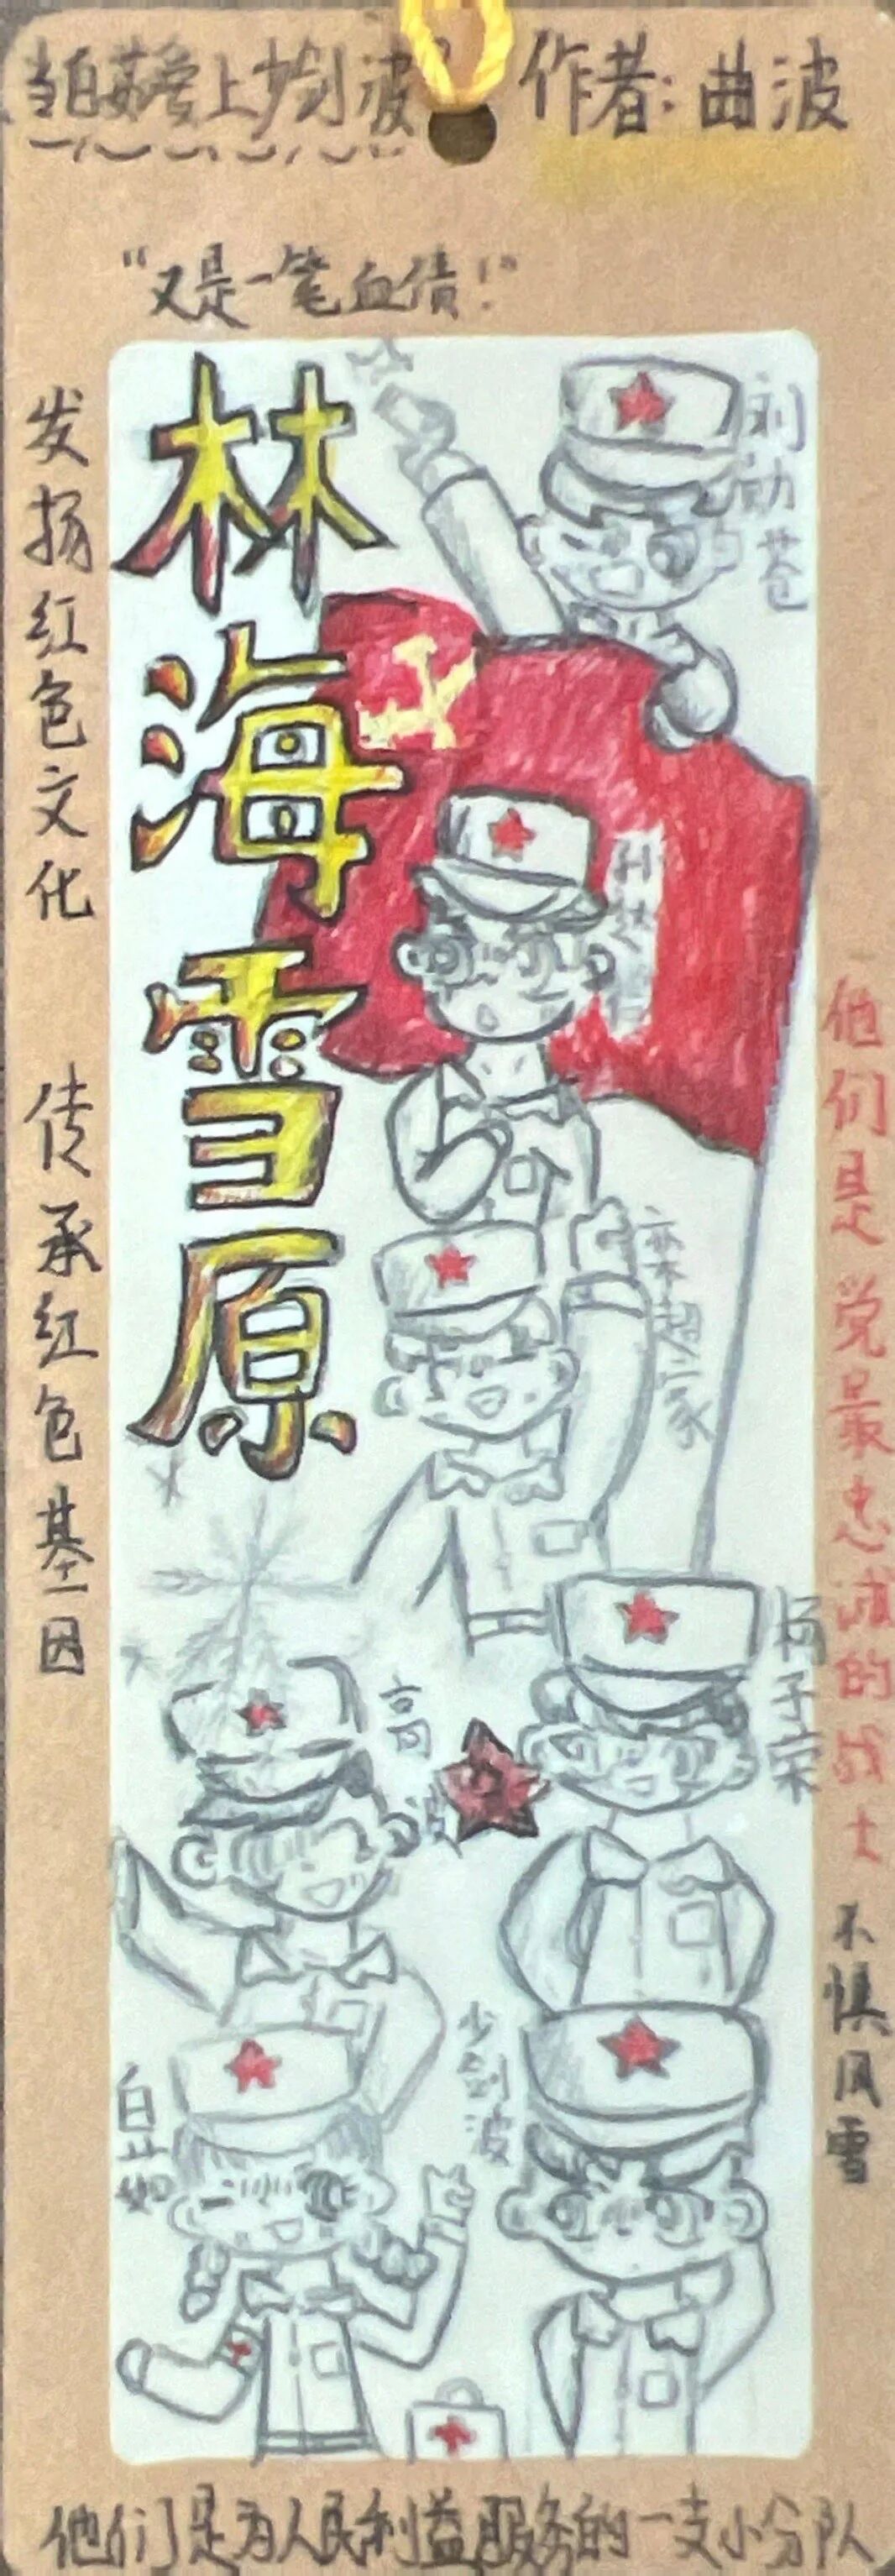 当白茹爱上少剑波
作者：曲波
“又是一笔血债！”
林海雪原
发扬红色文化 传承红色基因
刘勋苍
孙达得
栾超家
杨子荣
高波
少剑波
白茹
他们是党最忠诚的战士 不惧风雪
他们是为人民利益服务的一支小分队